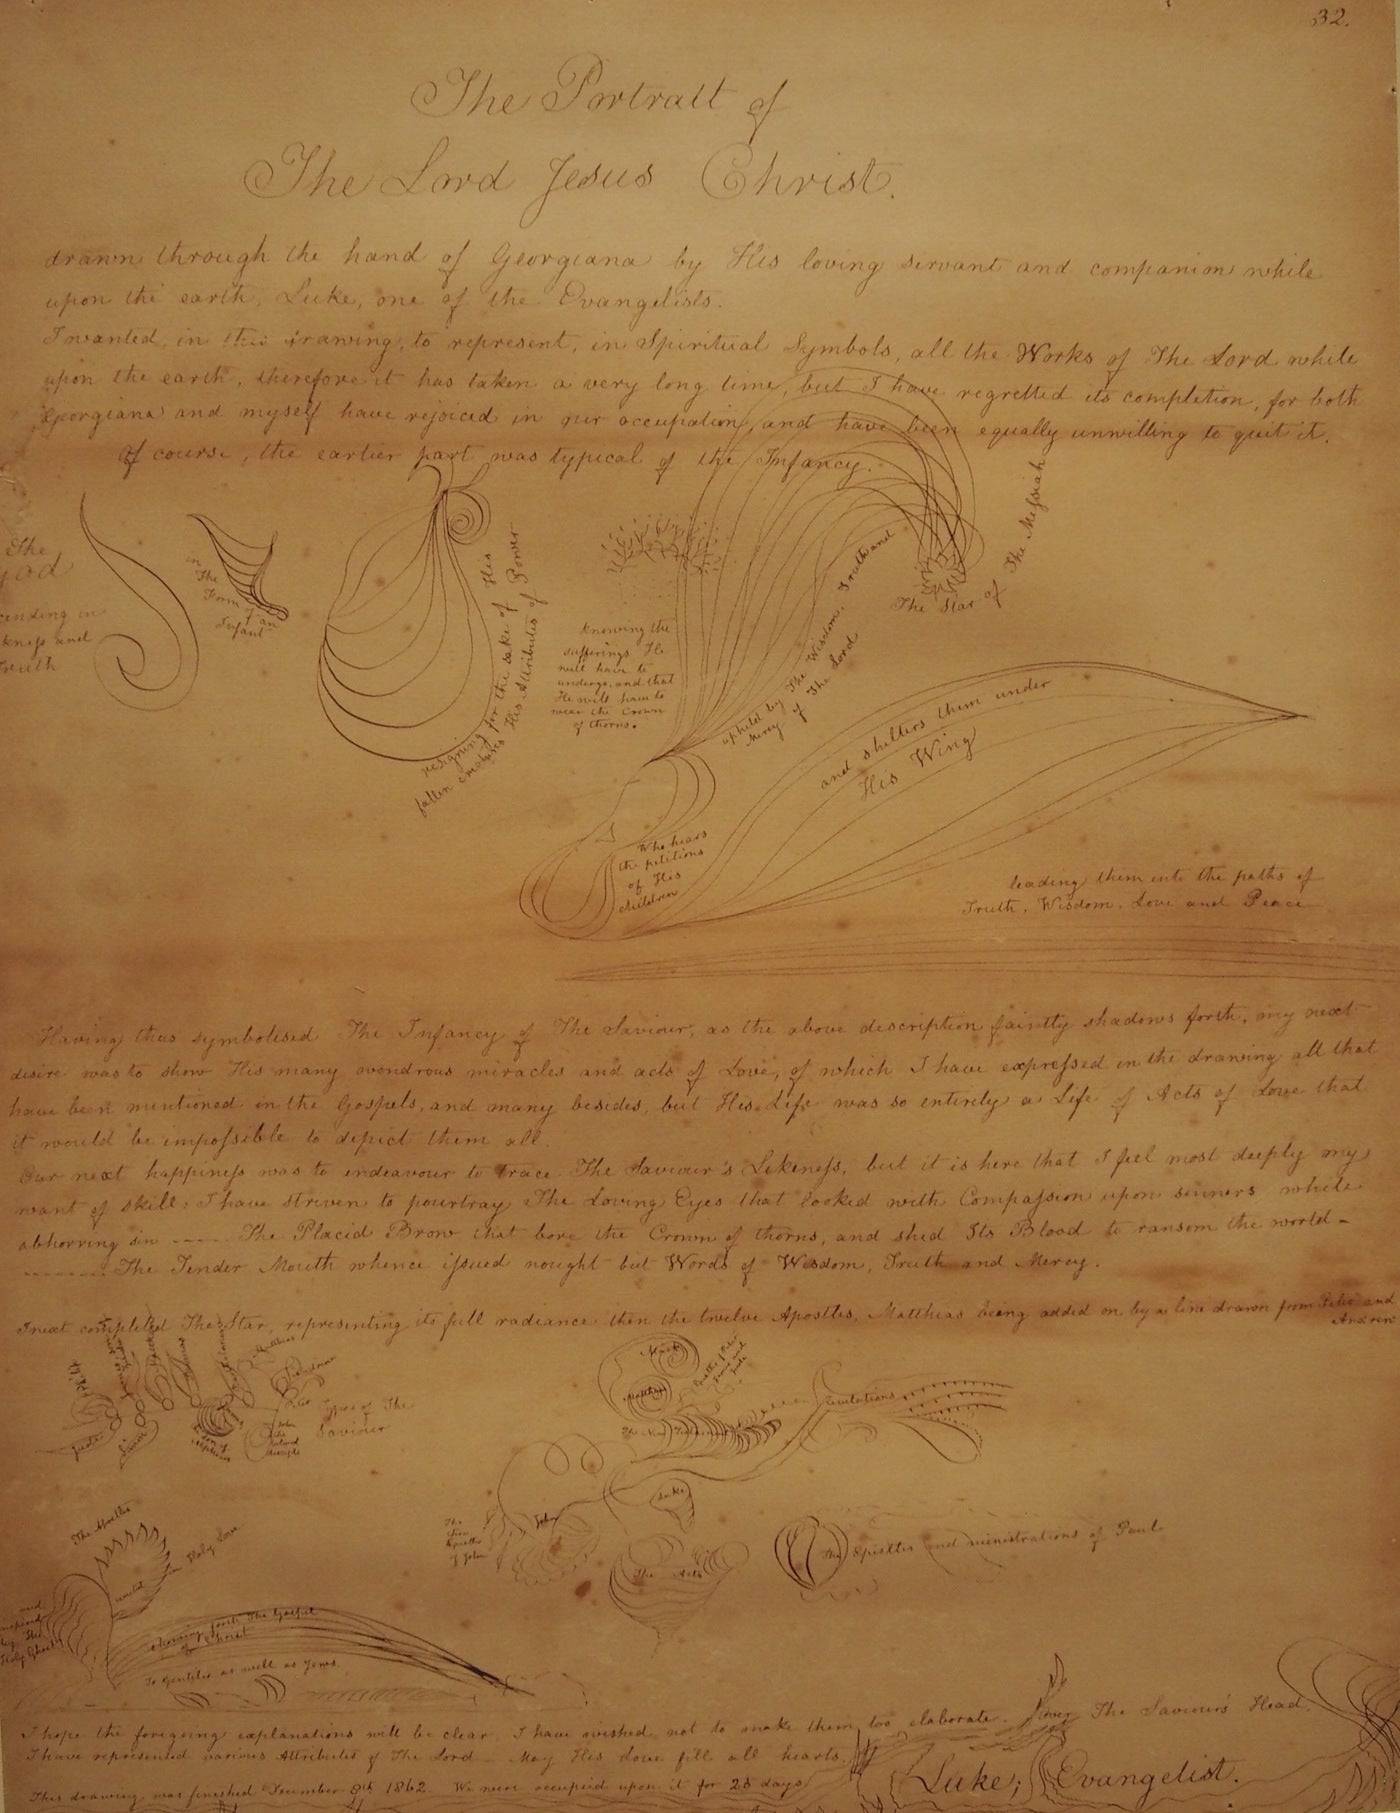 32.
The Portrait of
The Lord Jesus Christ.
drawn through the hand of Georgiana by His loving servant and companion while
upon the earth, Luke, one of the Evangelists.
I wanted, in this drawing, to represent, in Spiritual Symbols, all the Works of The Lord while
upon the earth, therefore it has taken a very long time, but I have regretted its completion, for both
Georgiana and myself have rejoiced in our occupation, and have been equally unwilling to quit it.
Of course, the earlier part was typical of the Infancy.
The
God
in
kness and
Truth
in
The
Form of an
Infant
resigning for the sake of His
fallen His Attributes of Power
knowing the
sufferings He
will have to
undergo, and that
He will have to
wear the Crown
of thorns.
upheld by The Wisdom, Truth and
Mercy of The Lord
The Star of The Messiah
and shelters them under
His Wing
Who hears
the petitions
of His
children
leading them into the paths of
Truth, Wisdom, Love and Peace
Having thus symbolised The Infancy of The Saviour, as the above description faintly shadows forth, my next
desire was to show His many wondrous miracles and acts of Love, of which I have expressed in the drawing all that
have been mentioned in the Gospels, and many besides, but His Life was so entirely a Life of Acts of Love that
it would be impossible to depict them all.
Our next happiness was to endeavour to trace The Saviour's Likeness, but it is here that I feel most deeply my
want of skill; I have striven to pourtray The Loving Eyes that looked with Compassion upon sinners while
abhorring sin ---- The Placid Brow that bore the Crown of thorns, and shed Its Blood to ransom the world -
-------- The Tender Mouth whence issued nought but Words of Wisdom, Truth and Mercy.
I next completed The Star, representing its full radiance then the twelve Apostles, Matthias being added on by a line drawn from Peter and
Andrew
Philip
Jude
Simon
Matthias
Andrew
Peter
John
the
Beloved
disciple
Types of The
Saviour
Mark
Matthew
The New Testament
Revelations
Luke
John
The
Epistles
of John
The Acts
The Epistles and ministrations of Paul
The Apostles
Holy Love
by The
Holy Ghost
shewing forth The Gospel
of Christ
To Gentiles as well as Jews.
I hope the foregoing explanations will be clear, I have wished not to make them too elaborate. Over The Saviour's Head,
I have represented various Attributes of The Lord - May His Love fill all hearts.
Luke, Evangelist.
This drawing was finished December 8th 1862. We were occupied upon it for 28 days